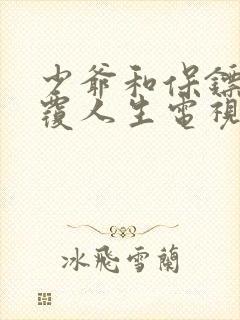 少爺和保鏢
覆人生電視
冰飛雪蘭